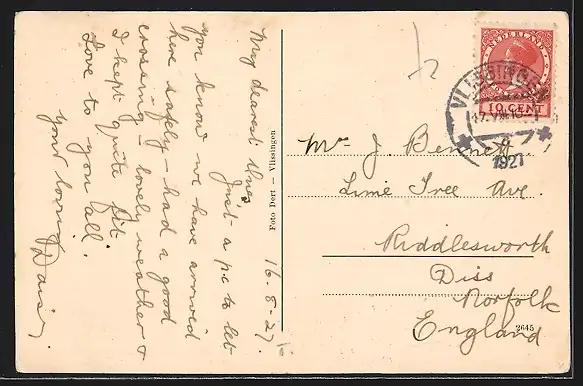 16-8-27.
My dearest Ones
Just a pc to let
you know we have arrived
here safely - had a good
crossing - lovely weather &
I kept quite fit.
Love to you all.
your loving
Daisy
Foto Dert — Vlissingen
NEDERLAND
10 CENT
VLISSINGEN
1927
Mr J. Bennett.
Lime Tree Ave.
Riddlesworth
Diss
Norfolk
England
2645